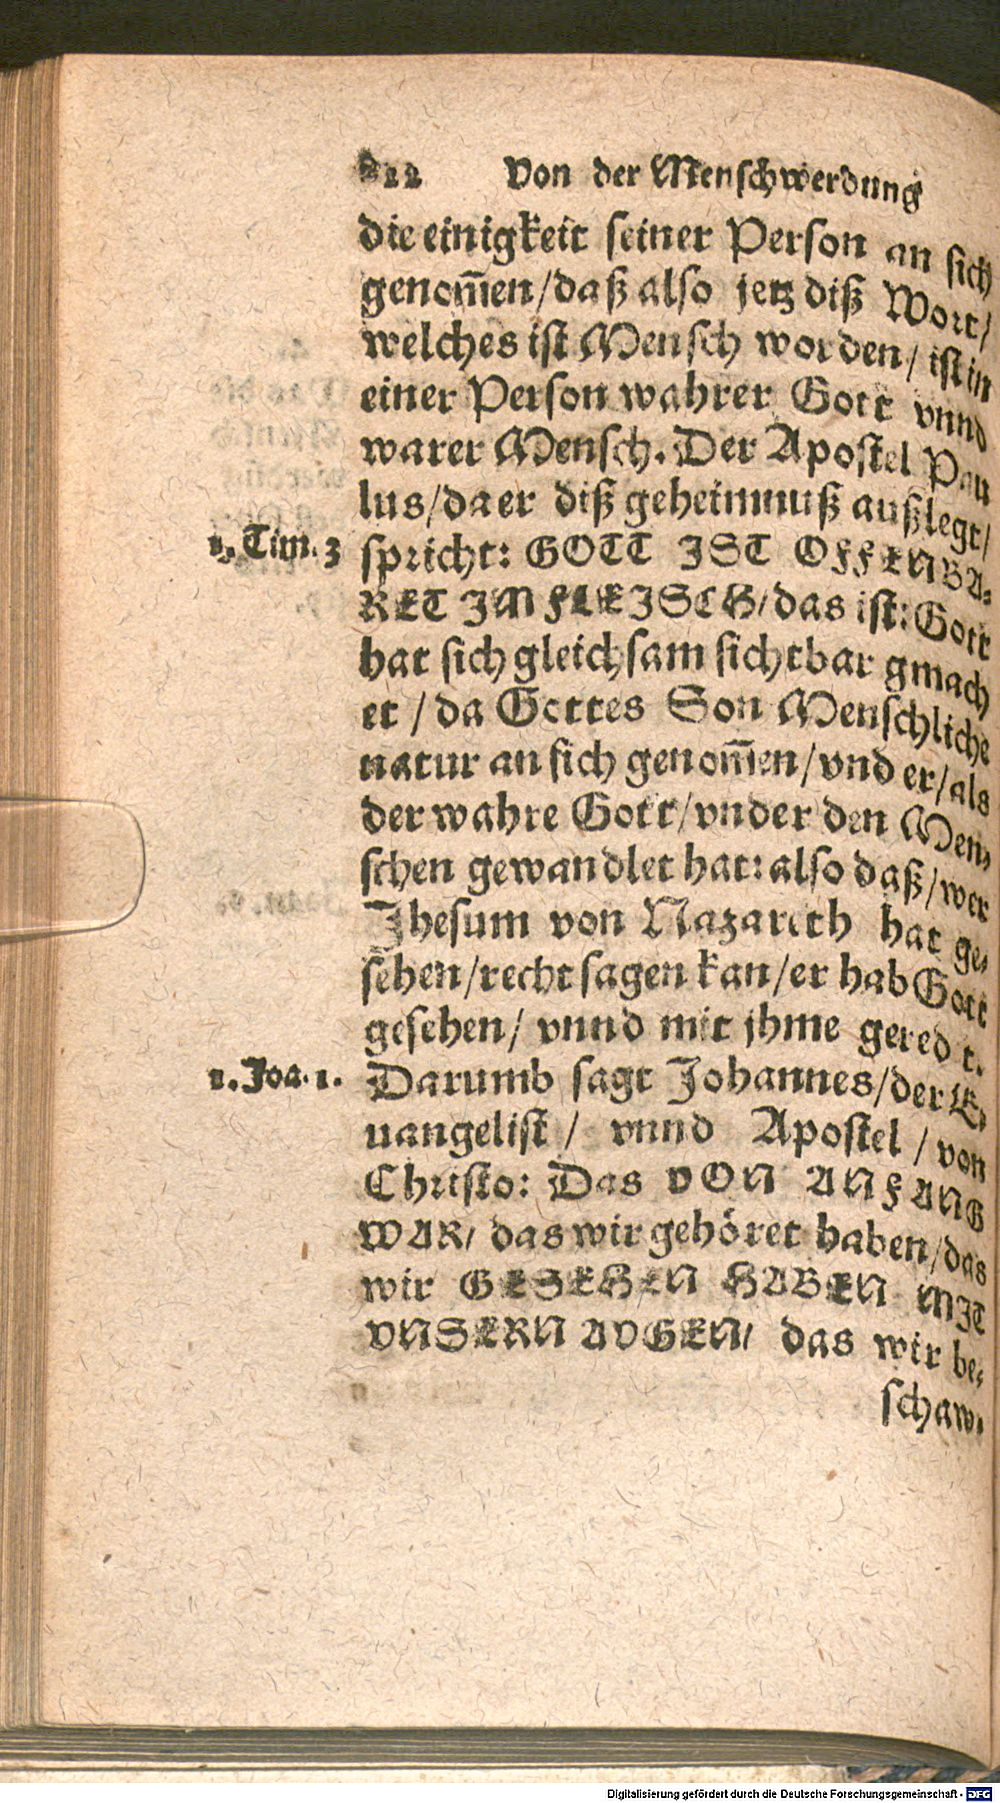 212 Von der Menschwerdung
die einigkeit seiner Person an sich
genom̃en/daß also jetz diß Wort/
welches ist Mensch worden/ ist in
einer Person wahrer Gott vnnd
warer Mensch. Der Apostel Pau
lus/da er diß geheimnuß außlegt/
1. Tim. 3
spricht: GOTT IST OFFENBA-
RET IM FLEISCH/das ist: Gott
hat sich gleichsam sichtbar gmach
et / da Gottes Son Menschliche
natur an sich genom̃en/vnd er/als
der wahre Gott/vnder den Men-
schen gewandlet hat: also daß/wer
Jhesum von Nazareth hat ge-
sehen/recht sagen kan/er hab Gott
gesehen/ vnnd mit jhme geredt.
1. Joa. 1.
Darumb sagt Johannes/der E-
uangelist / vnnd Apostel / von
Christo: Das VON ANFANG
WAR/ das wir gehöret haben/das
wir GESEHEN HABEN MIT
VNSERN AVGEN/ das wir be-
schaw-
Digitalisierung gefördert durch die Deutsche Forschungsgemeinschaft - DFG